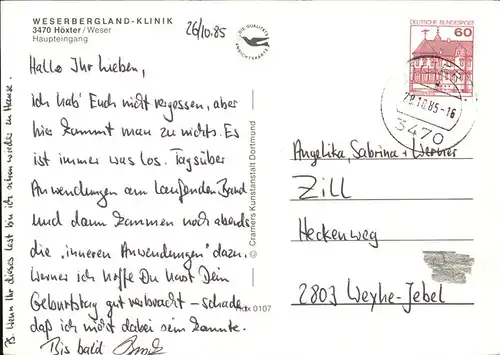 WESERBERGLAND-KLINIK
3470 Höxter / Weser
Haupteingang
26/10.85
DIE QUALITÄTS
ANSICHTSKARTE
Hallo Ihr Lieben,
ich hab' Euch nicht vergessen, aber
hier kommt man zu nichts. Es
ist immer was los. Tagsüber
Anwendungen am laufenden Band
und dann kommen noch abends
die „inneren Anwendungen" dazu.
Werner ich hoffe Du hast Dein
Geburtstag gut verbracht – schade,
daß ich nicht dabei sein konnte.
Bis bald
PS. Wenn Ihr dieses lest bin ich schon wieder zu Hause.
© Cramers Kunstanstalt Dortmund
Hdx 0107
DEUTSCHE BUNDESPOST
60
28.10.85-16
3470
Angelika, Sabrina + Werner
Zill
Heckenweg
2803 Weyhe-Jebel